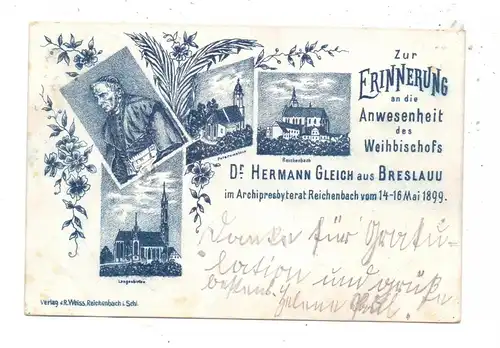 Zur
ERINNERUNG
an die
Anwesenheit
des
Weihbischofs
Dr. HERMANN GLEICH aus BRESLAUU
im Archipresbyterat Reichenbach vom 14-16 Mai 1899.
Peterswaldau
Reichenbach
Langenbielau
Danke für Gratu-
lation und grüße
bestens. Helene
Verlag v. R. Weiss, Reichenbach i. Schl.